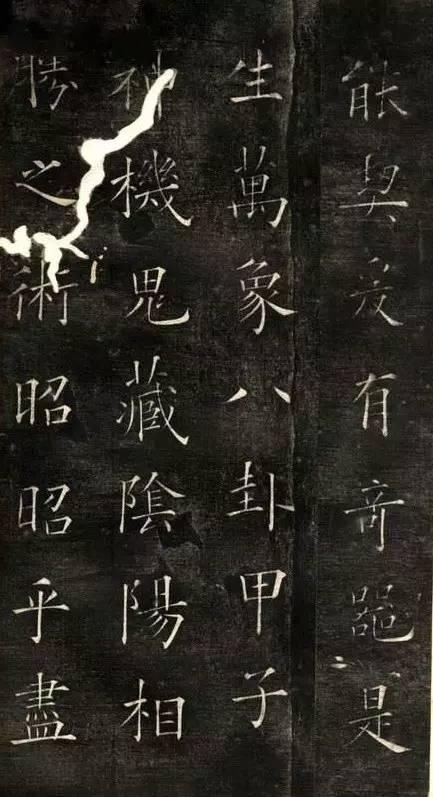 能契爰有奇器是
生萬象八卦甲子
神機鬼藏陰陽相
勝之術昭昭乎盡